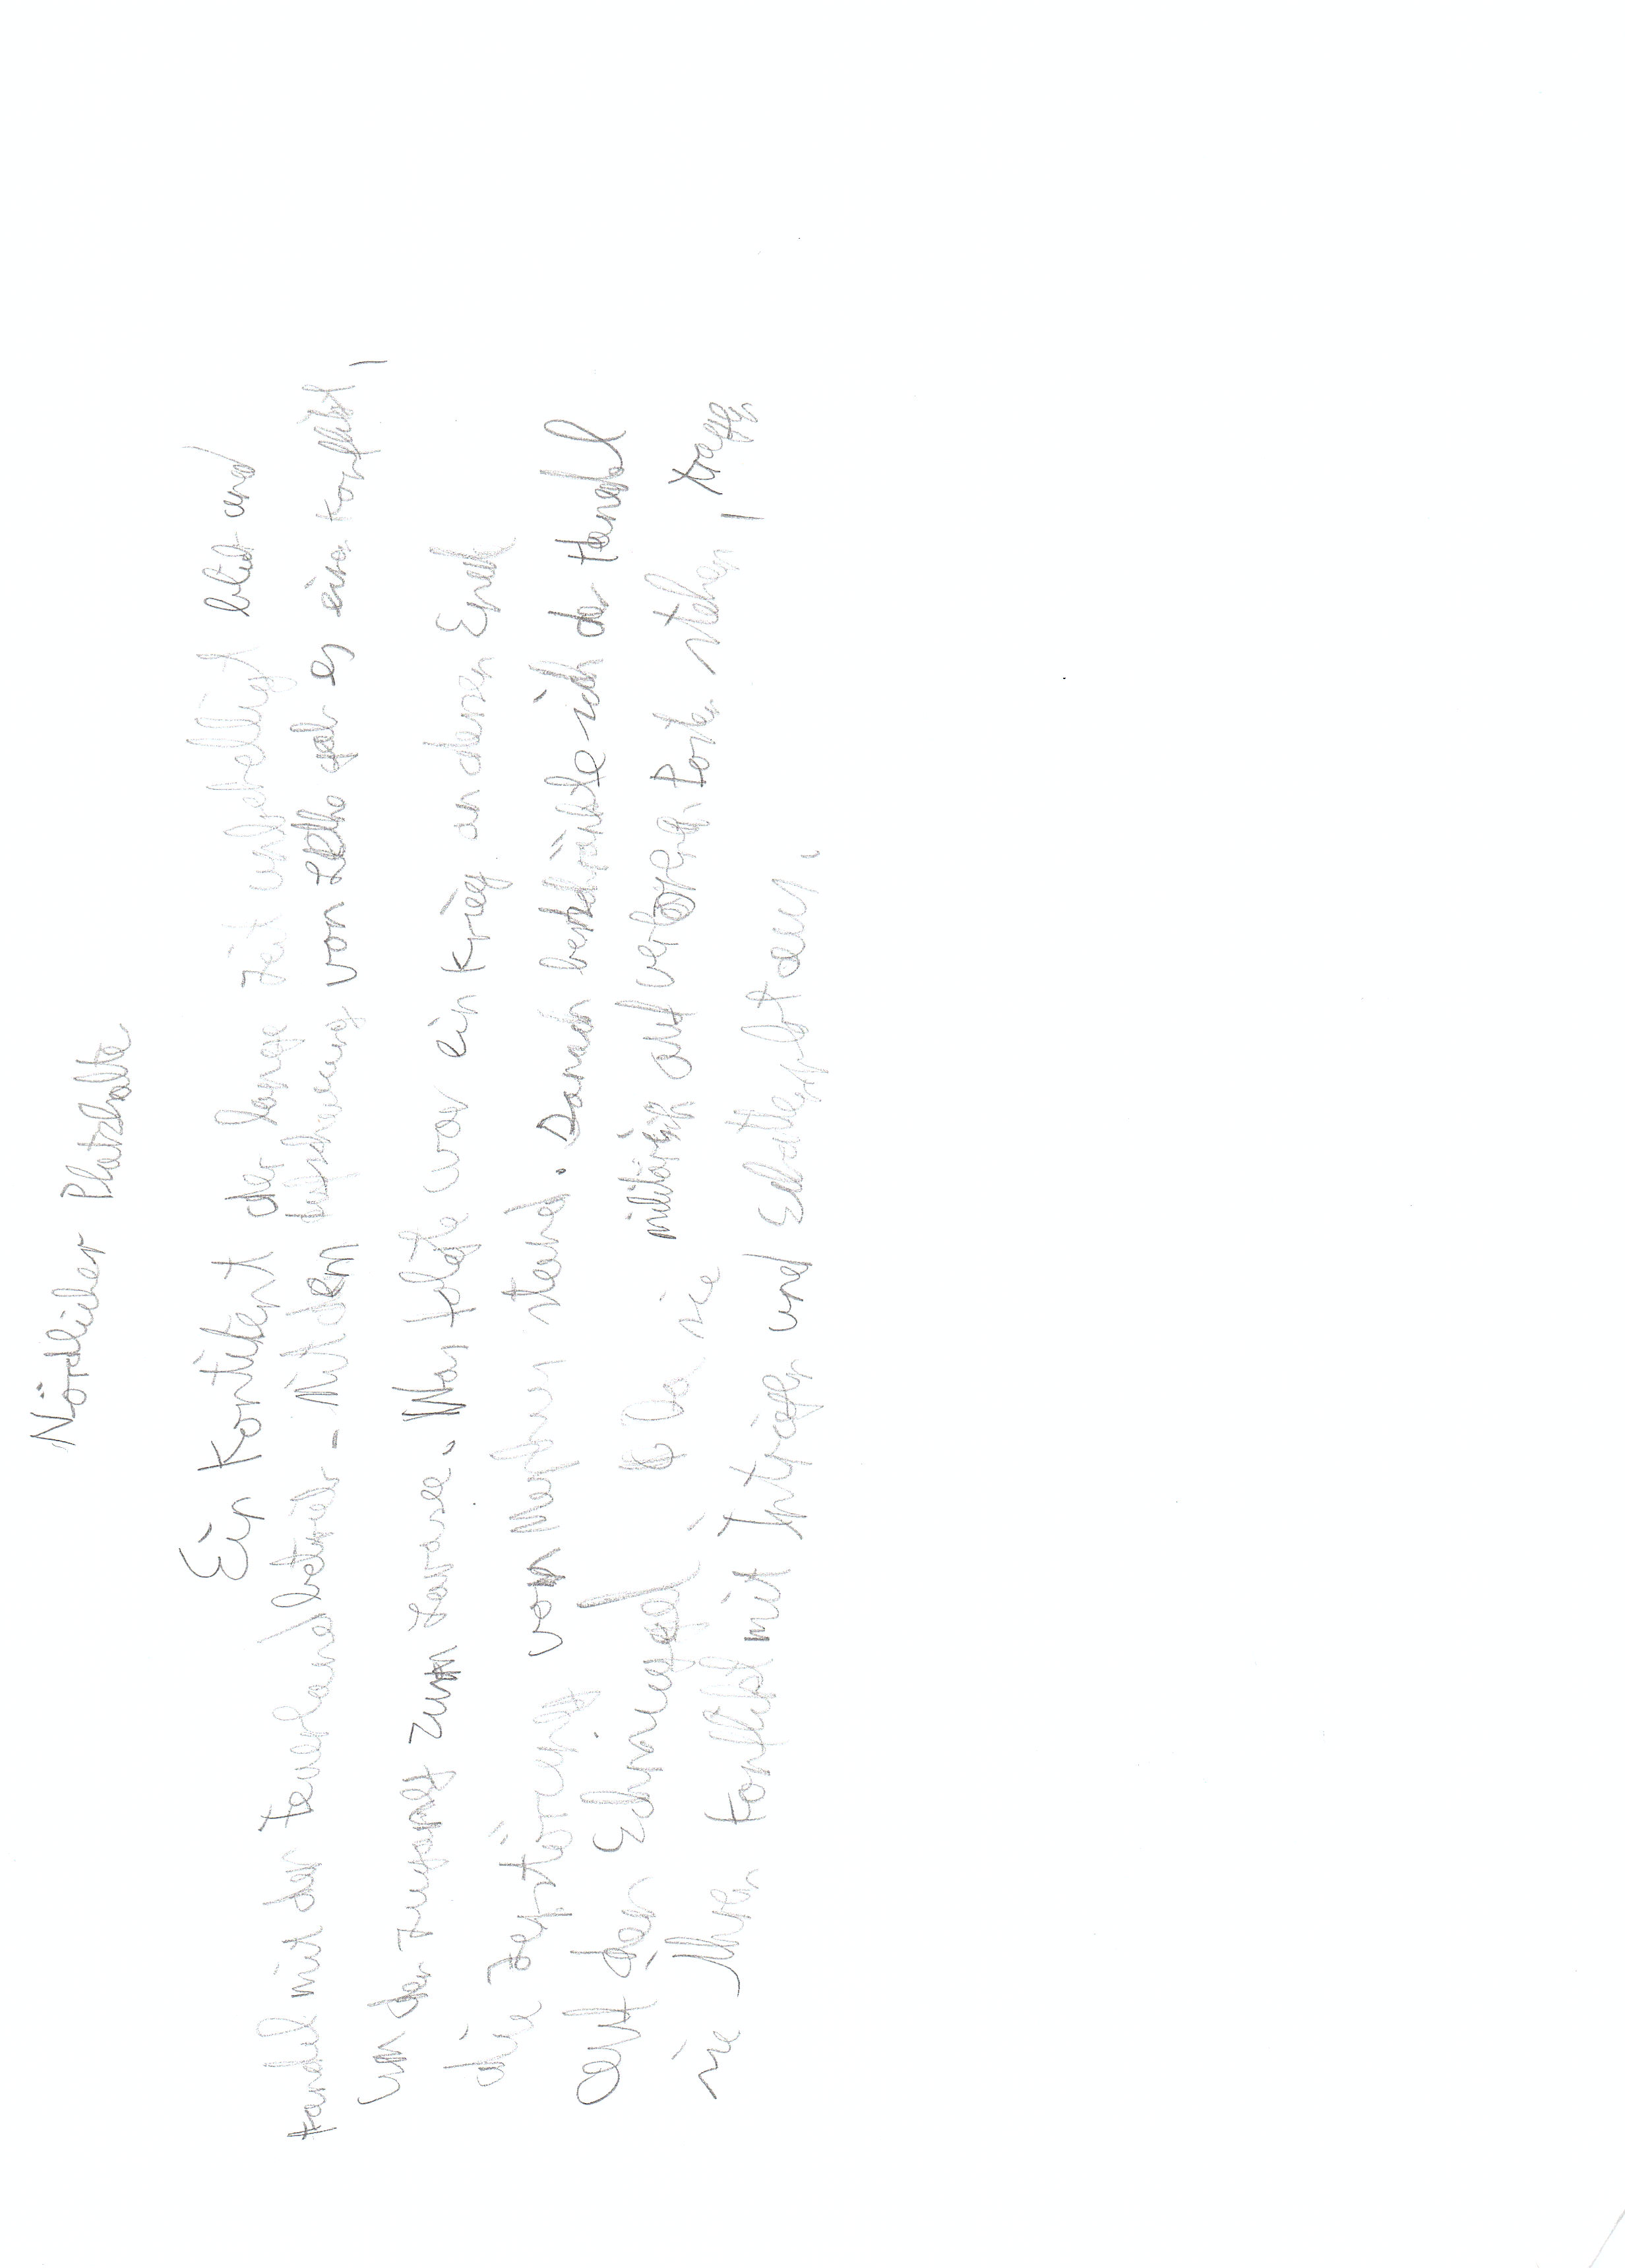 Nördlicher Platzhalte
Ein Kontitent der lange Zeit unbehelligt blieb und
Handel mit der Feuerland betrieb. Mit dem von gab es einen Konflikt,
um den Zugang zum Lavasee. Was folgte war ein Krieg an dessen Ende
die Zerstörung von stand. Danach beschränkte sich der Handel
auf den Schmuggel. Da sie militärisch auf verlorenen Posten stehen, tragen
sie Ihren Konflikt mit Intrigen und aus.